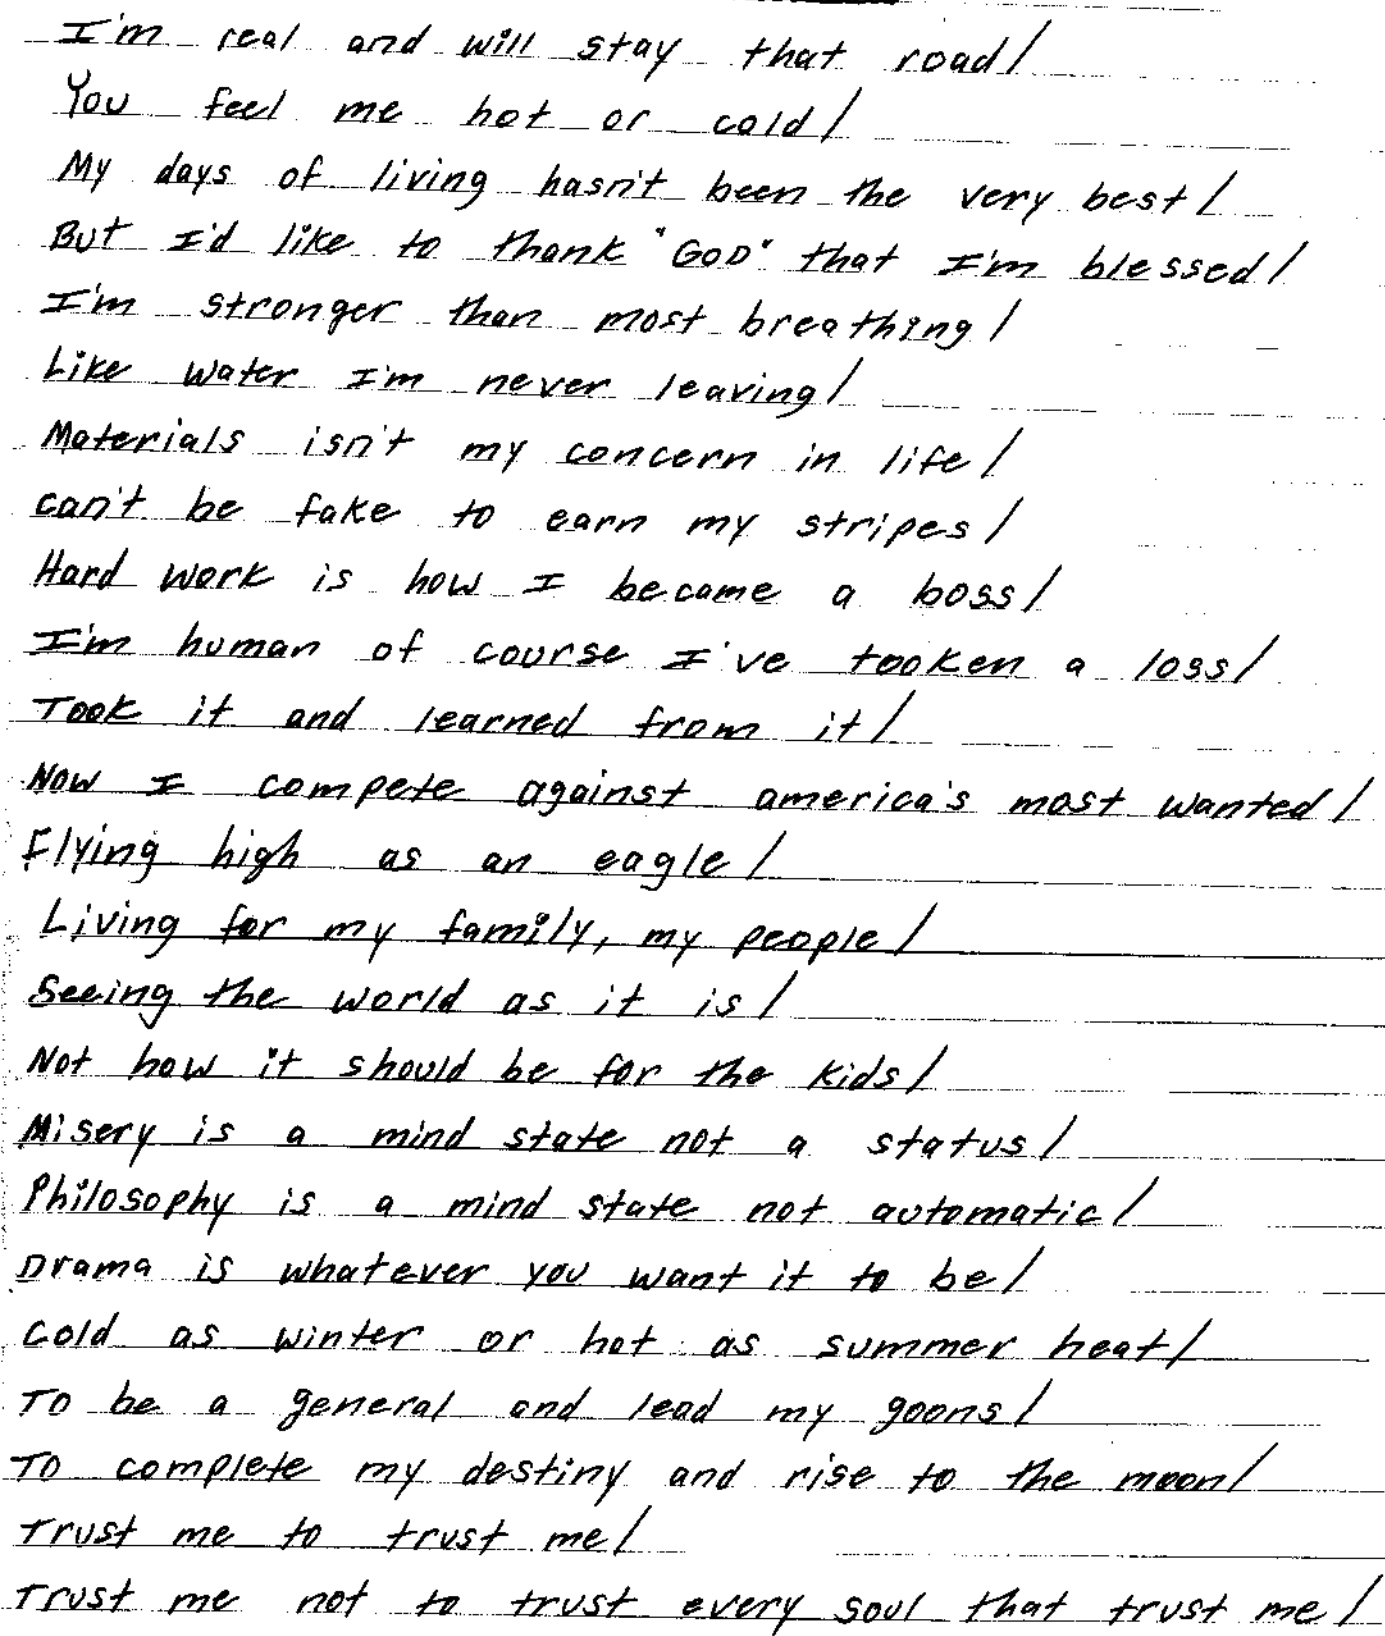 I'm real and will stay that road/
You feel me hot or cold/
My days of living hasn't been the very best/
But I'd like to thank "GOD" that I'm blessed/
I'm stronger than most breathing/
Like water I'm never leaving/
Materials isn't my concern in life/
can't be fake to earn my stripes/
Hard work is how I became a boss/
I'm human of course I've tooken a loss/
Took it and learned from it/
Now I compete against america's most wanted/
Flying high as an eagle/
Living for my family, my people/
Seeing the world as it is/
Not how it should be for the kids/
Misery is a mind state not a status/
Philosophy is a mind state not automatic/
Drama is whatever you want it to be/
Cold as winter or hot as summer heat/
To be a general and lead my goons/
To complete my destiny and rise to the moon/
Trust me to trust me/
Trust me not to trust every soul that trust me/